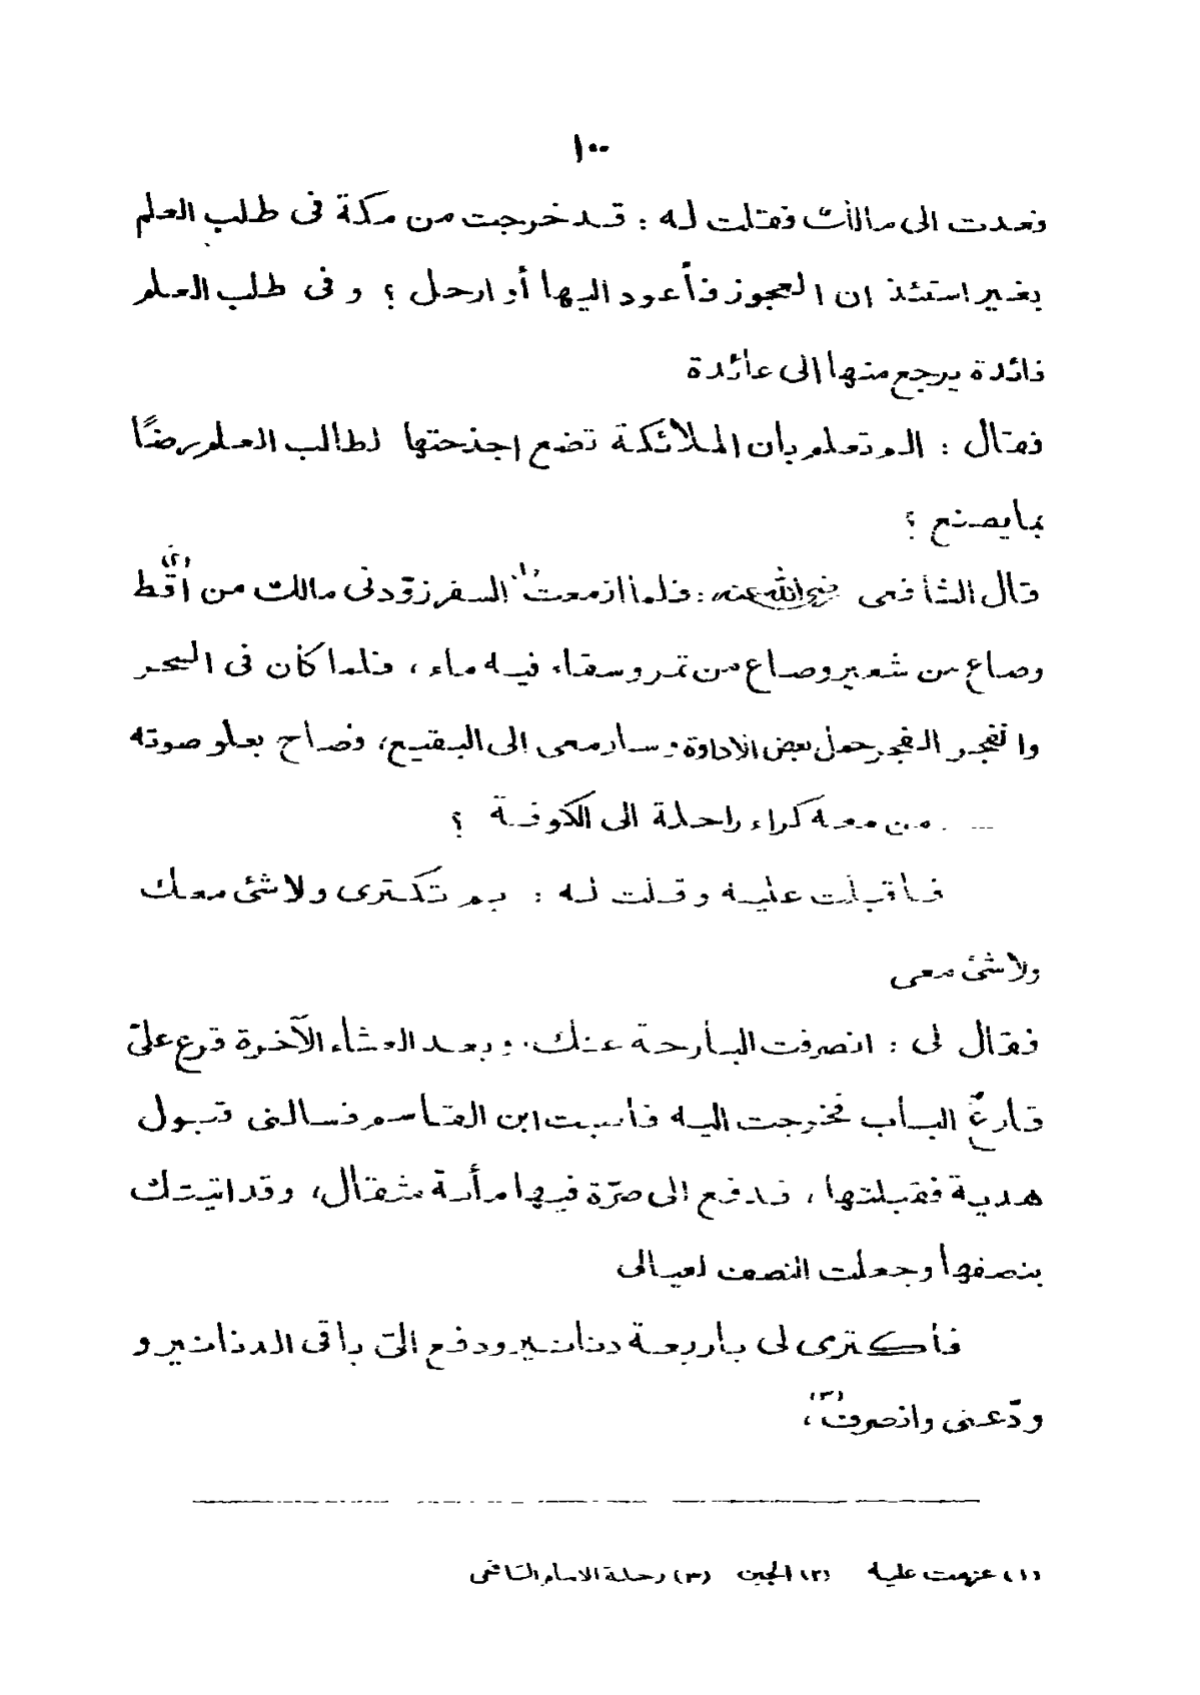 ١٠٠
فعدت الى مالك فقلت له : قد خرجت من مكة فى طلب العلم
بغير استئذ ان العجوز فأعود اليها أو ارحل ؟ و فى طلب العلم
فائدة يرجع منها الى عائدة
فقال : الم تعلم بان الملائكة تضع اجنحتها لطالب العلم رضًا
بما يصنع ؟
قال الشافعى رضى الله عنه : فلما ازمعت (١) السفر زوّدنى مالك من أقط (٢)
وصاع من شعير وصاع من تمر وسقاء فيه ماء ، فلما كان فى السحر
وانفجر الفجر حمل بعض الاداوة وسار معى الى البقيع، فصاح بعلو صوته
من معه كراء راحلة الى الكوفة ؟
فاقبلت عليه وقلت له : بم تكترى ولا شئ معك
ولا شئ معى
فقال لى : انصرفت البارحة عنك. وبعد العشاء الآخرة قرع علىّ
قارعٌ الباب فخرجت اليه فأصبت ابن القاسم فسالنى قبول
هدية فقبلتها ، فدفع الى صرّة فيها مأئة مثقال، وقد اتيتك
بنصفها وجعلت النصف لعيالى
فأكترى لى باربعة دنانير ودفع الىّ باقى الدنانير و
ودّعنى وانصرف (٣)،
(١) عزمت عليه (٢) الجبن (٣) رحلة الامام الشافعى